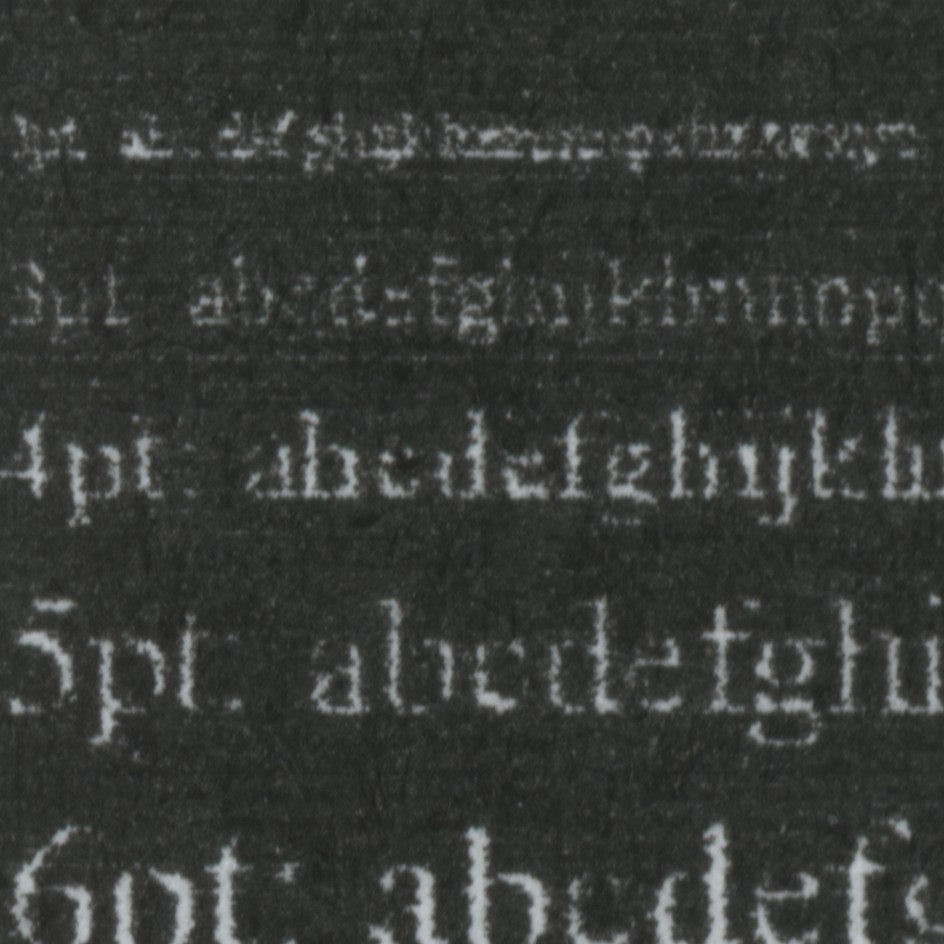 3pt abcdefghijklmnop
4pt: abcdefghijkl
5pt: abcdefghi
6pt: abcdef